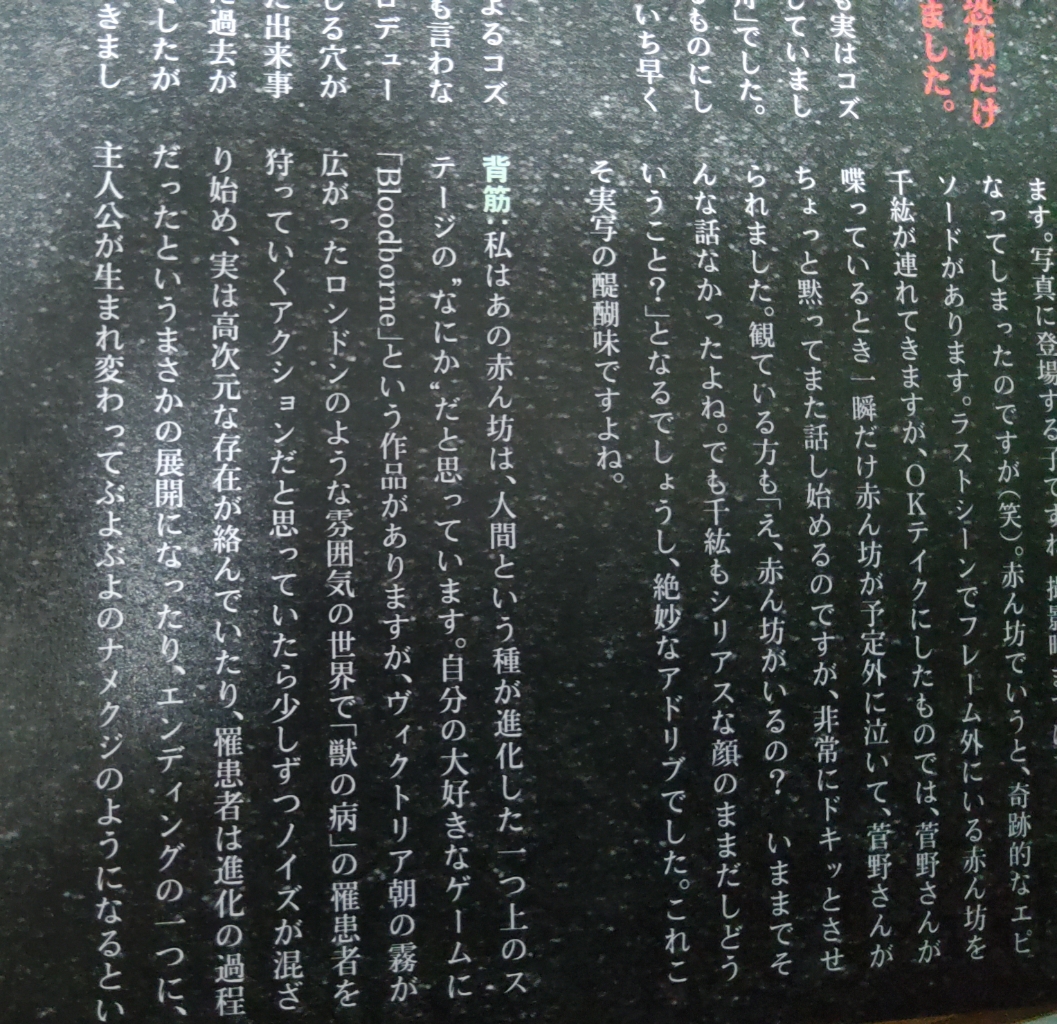 恐怖だけ
ました。
も実はコズ
していまし
」でした。
ものにし
いち早く
よるコズ
も言わな
ロデュー
しる穴が
た出来事
た過去が
でしたが
きまし
ます。写真に登場する子ですね。
なってしまったのですが(笑)。赤ん坊でいうと、奇跡的なエピ
ソードがあります。ラストシーンでフレーム外にいる赤ん坊を
千紘が連れてきますが、OKテイクにしたものでは、菅野さんが
喋っているとき一瞬だけ赤ん坊が予定外に泣いて、菅野さんが
ちょっと黙ってまた話し始めるのですが、非常にドキッとさせ
られました。観ている方も「え、赤ん坊がいるの? いままでそ
んな話なかったよね。でも千紘もシリアスな顔のままだしどう
いうこと?」となるでしょうし、絶妙なアドリブでした。これこ
そ実写の醍醐味ですよね。
背筋:私はあの赤ん坊は、人間という種が進化した一つ上のス
テージの〝なにか〟だと思っています。自分の大好きなゲームに
「Bloodborne」という作品がありますが、ヴィクトリア朝の霧が
広がったロンドンのような雰囲気の世界で「獣の病」の罹患者を
狩っていくアクションだと思っていたら少しずつノイズが混ざ
り始め、実は高次元な存在が絡んでいたり、罹患者は進化の過程
だったというまさかの展開になったり、エンディングの一つに、
主人公が生まれ変わってぶよぶよのナメクジのようになるとい